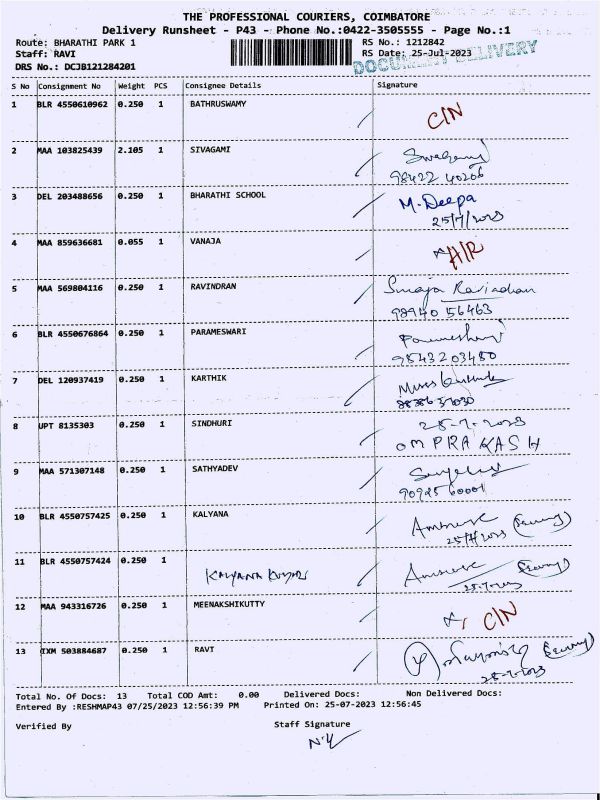 THE PROFESSIONAL COURIERS, COIMBATORE
Delivery Runsheet - P43 - Phone No.:0422-3505555 - Page No.:1
Route: BHARATHI PARK 1 RS No.: 1212842
Staff: RAVI RS Date: 25-Jul-2023
DOCUMENT DELIVERY
DRS No.: DCJB121284201
S No Consignment No Weight PCS Consignee Details Signature
1 BLR 4550610962 0.250 1 BATHRUSWAMY C/N
2 MAA 103825439 2.105 1 SIVAGAMI
98422 40206
3 DEL 203488656 0.250 1 BHARATHI SCHOOL M.Deepa
25/7/2023
4 MAA 859636681 0.055 1 VANAJA
5 MAA 569804116 0.250 1 RAVINDRAN
98940 56463
6 BLR 4550676864 0.250 1 PARAMESWARI
98432 03480
7 DEL 120937419 0.250 1 KARTHIK
8 UPT 8135303 0.250 1 SINDHURI 25-7-2023
OM PRAKASH
9 MAA 571307148 0.250 1 SATHYADEV
90925 60001
10 BLR 4550757425 0.250 1 KALYANA
25/7/2023
11 BLR 4550757424 0.250 1 KALYANA KUMAR
25-7-2023
12 MAA 943316726 0.250 1 MEENAKSHIKUTTY C/N
13 IXM 503884687 0.250 1 RAVI
25-7-2023
Total No. Of Docs: 13 Total COD Amt: 0.00 Delivered Docs: Non Delivered Docs:
Entered By :RESHMAP43 07/25/2023 12:56:39 PM Printed On: 25-07-2023 12:56:45
Verified By Staff Signature